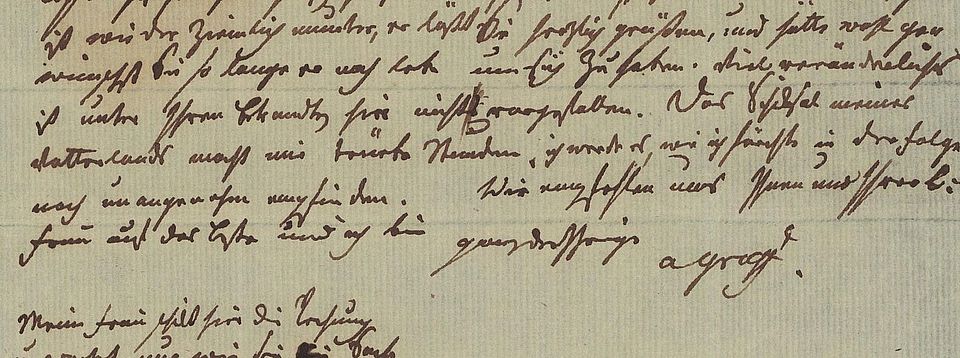 ist wieder ziemlich munter, er läßt Sie herzlich grüßen, und hätte wohl gern
wünscht Sie so lange er noch lebe um sich zu haben. Viel veränderliches
ist unter Ihren bekandten hier nicht vorgefallen. Das Schiksal meines
Vatterlands macht mir trübe Stunden, ich werde es, wie ich fürchte in der folge
noch unangenehm empfinden. Wir empfehlen uns Ihnen und Ihrer l:
frau auf das beste und ich bin ganz der Ihrige
a Graff
Meine frau schikt hier die Rechnung